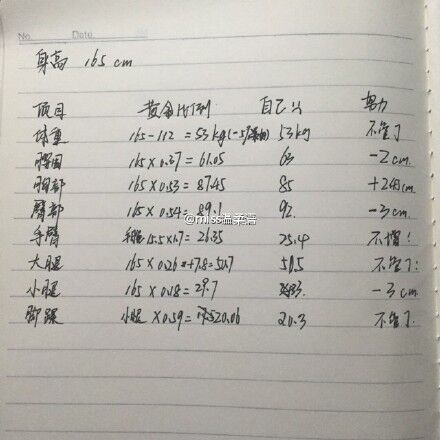 No. Date.
身高 165 cm
项目 黄金比例 自己 努力
体重 165-112=53kg 53kg 不管了
腰围 165×0.37=61.05 63 -2cm
胸部 165×0.53=87.45 85 +2.48cm
臀部 165×0.54=89.1 92 -3cm
@miss温柔酒
手臂 15.5×1.7=26.35 25.4 不增!
大腿 165×0.26+7.8=50.7 50.5 不管了!
小腿 165×0.18=29.7 33 -3cm
脚踝 小腿×0.59=20.06 20.3 不管了